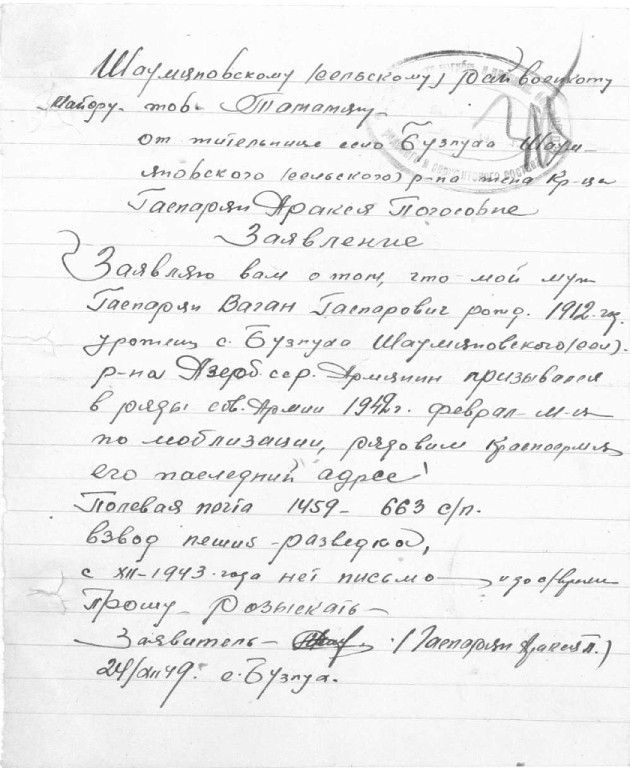 Шаумяновскому (сельскому) райвоенкому
Майору тов. Татамяну
от жительнице село Бузлуха Шаум-
яновского (сельского) р-па жена Кр-ца
Гаспарян Аракся Погосовне
Заявление
Заявляю вам о том, что мой муж
Гаспарян Ваган Гаспарович рожд. 1912-год.
урожец с. Бузлуха Шаумяновского (сел).
р-на Азерб. сср. Армянин призывался
в ряды сов. Армии 1942 г. феврал-м-ц
по моблизации, рядовим красноармия
его последний адрес!
Полевая почта 1459- 663 с/п.
взвод пеший-разведка,
с XII-1943-года нет письмо
Прошу Розыскать-
Заявитель- (Гаспарян Аракся П.)
с. Бузлуа.